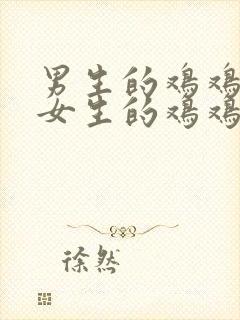 男生的鸡鸡
女生的鸡鸡
徐然